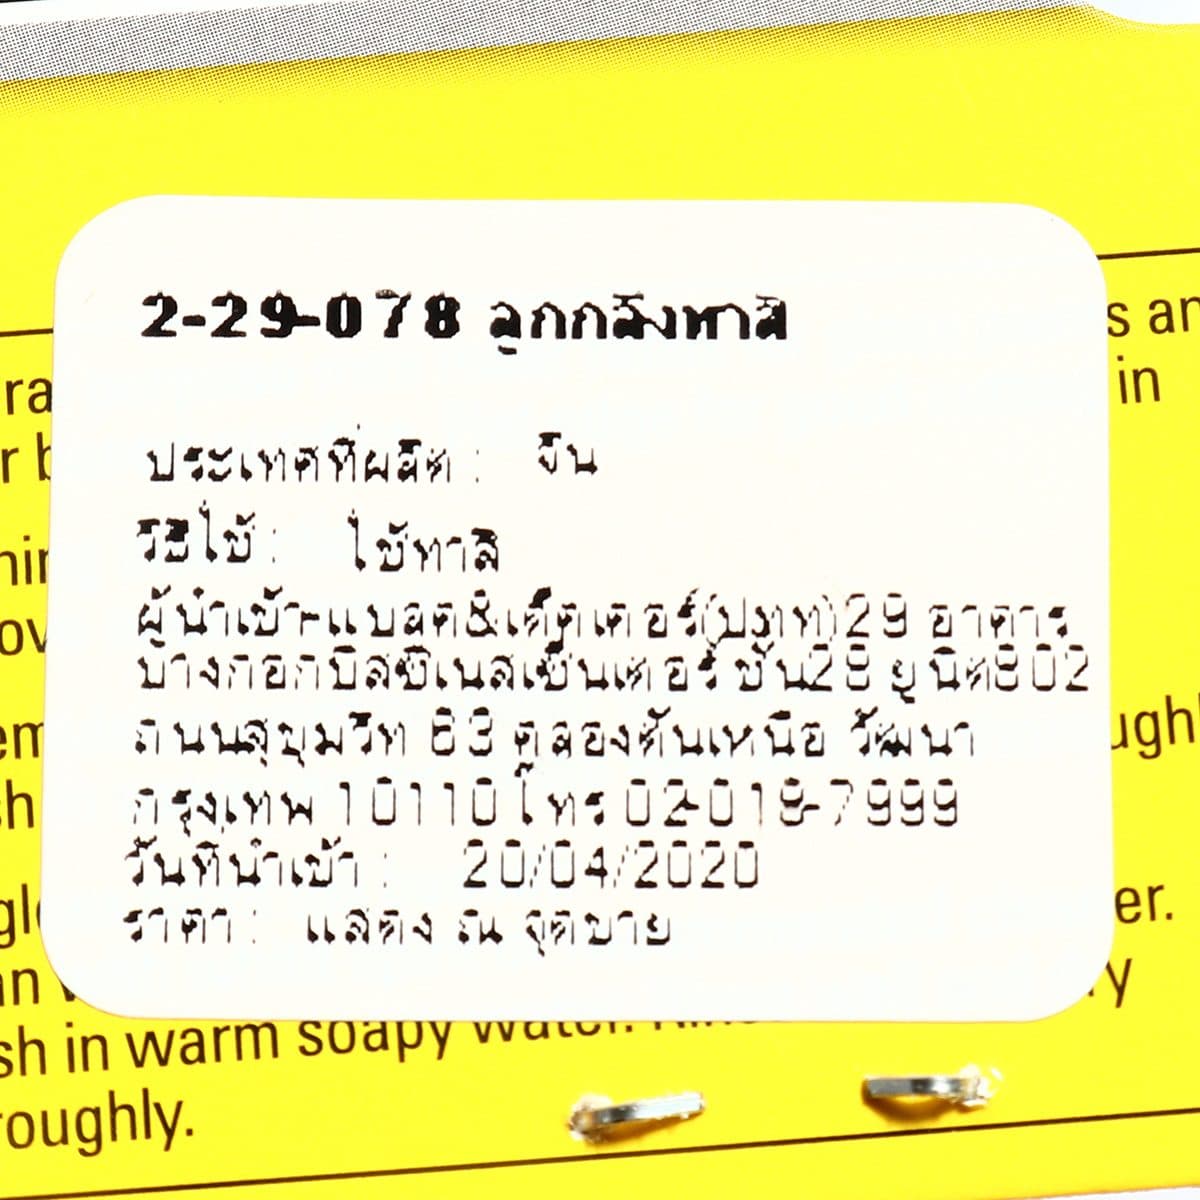 2-29-078 ลูกกลิ้งทาสี
s an
ra
in
r b
ประเทศที่ผลิต : จีน
วิธีใช้ : ใช้ทาสี
ผู้นำเข้า-แบลค&เด็คเคอร์(ปทท)29 อาคาร
บางกอกบิสซิเนสเซ็นเตอร์ ชั้น29 ยูนิต2902
ถนนสุขุมวิท 63 คลองตันเหนือ วัฒนา
กรุงเทพ 10110 โทร 02-018-7999
วันที่นำเข้า : 20/04/2020
ราคา : แสดง ณ จุดขาย
ov
em
ugh
sh
er.
an
y
sh in warm soapy water.
roughly.